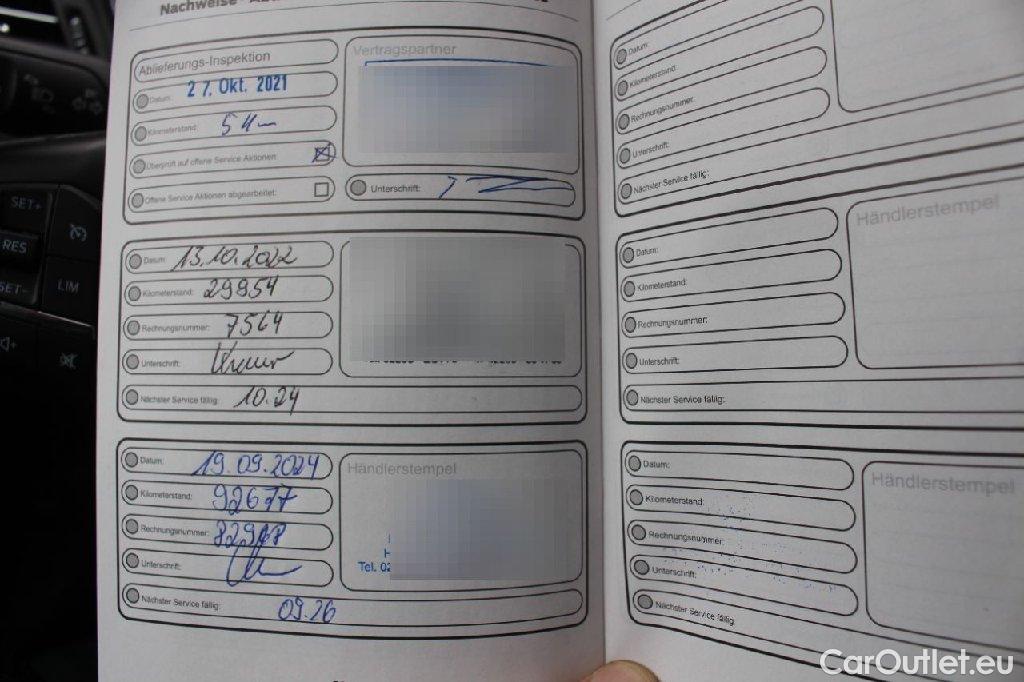 Nachweise
SET+
RES
SET-
LIM
Ablieferungs-Inspektion
Datum: 27. Okt. 2021
Kilometerstand: 5 km
Überprüft auf offene Service Aktionen:
Offene Service Aktionen abgearbeitet:
Vertragspartner
Unterschrift:
Datum: 13.10.2022
Kilometerstand: 29954
Rechnungsnummer: 7564
Unterschrift:
Nächster Service fällig: 10.24
Datum: 19.09.2024
Kilometerstand: 92677
Rechnungsnummer:
Unterschrift:
Nächster Service fällig: 09.26
Händlerstempel
Tel. 02
Datum:
Kilometerstand:
Rechnungsnummer:
Unterschrift:
Nächster Service fällig:
Datum:
Kilometerstand:
Rechnungsnummer:
Unterschrift:
Nächster Service fällig:
Händlerstempel
Datum:
Kilometerstand:
Rechnungsnummer:
Unterschrift:
Nächster Service fällig:
Händlerstempel
CarOutlet.eu